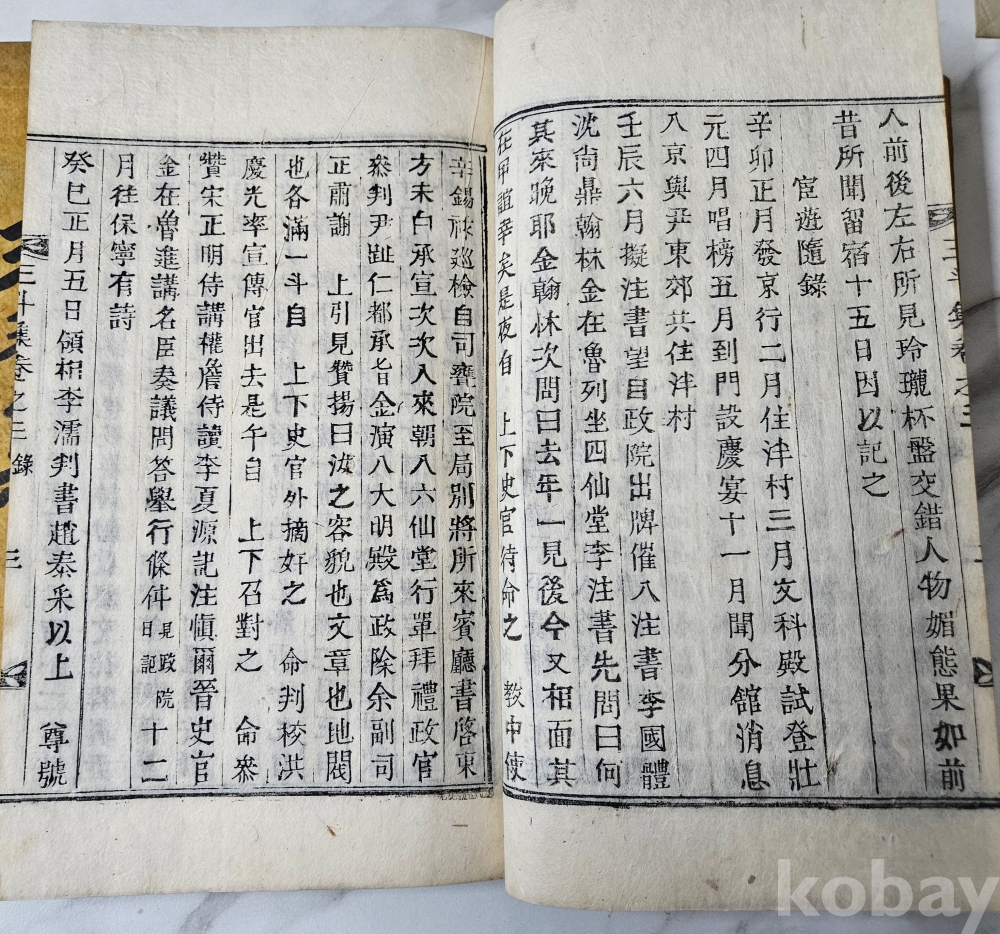 人前後左右所見玲瓏杯盤交錯人物媚態果如前
昔所聞留宿十五日因以記之
宦遊隨錄
辛卯正月發京行二月住泮村三月文科殿試登壯
元四月唱榜五月到門設慶宴十一月聞分館消息
入京與尹東郊共住泮村
壬辰六月擬注書望自政院出牌催入注書李國體
沈尙鼎翰林金在魯列坐四仙堂李注書先問曰何
其來晚耶金翰林次問曰去年一見後今又相面其
在用誼幸矣是夜自 上下史官待命之 敎中使
辛錫祿巡檢自司饔院至局別將所來賓廳書啓東
方未白承宣次次入來朝入六仙堂行單拜禮政官
叅判尹趾仁都承旨金演入大明殿爲政除余副司
正肅謝 上引見贊揚曰汝之容貌也文章也地閥
也各滿一斗自 上下史官外摘奸之 命判校洪
慶先率宣傳官出去是午自 上下召對之 命叅
贊宋正明侍講權詹侍讀李夏源記注愼爾晉史官
金在曾進講名臣奏議問答擧行條件見政院日記十二
月往保寧有詩
癸巳正月五日領相李濡判書趙泰采以上 尊號
三斗集卷之三 錄 三
kobay